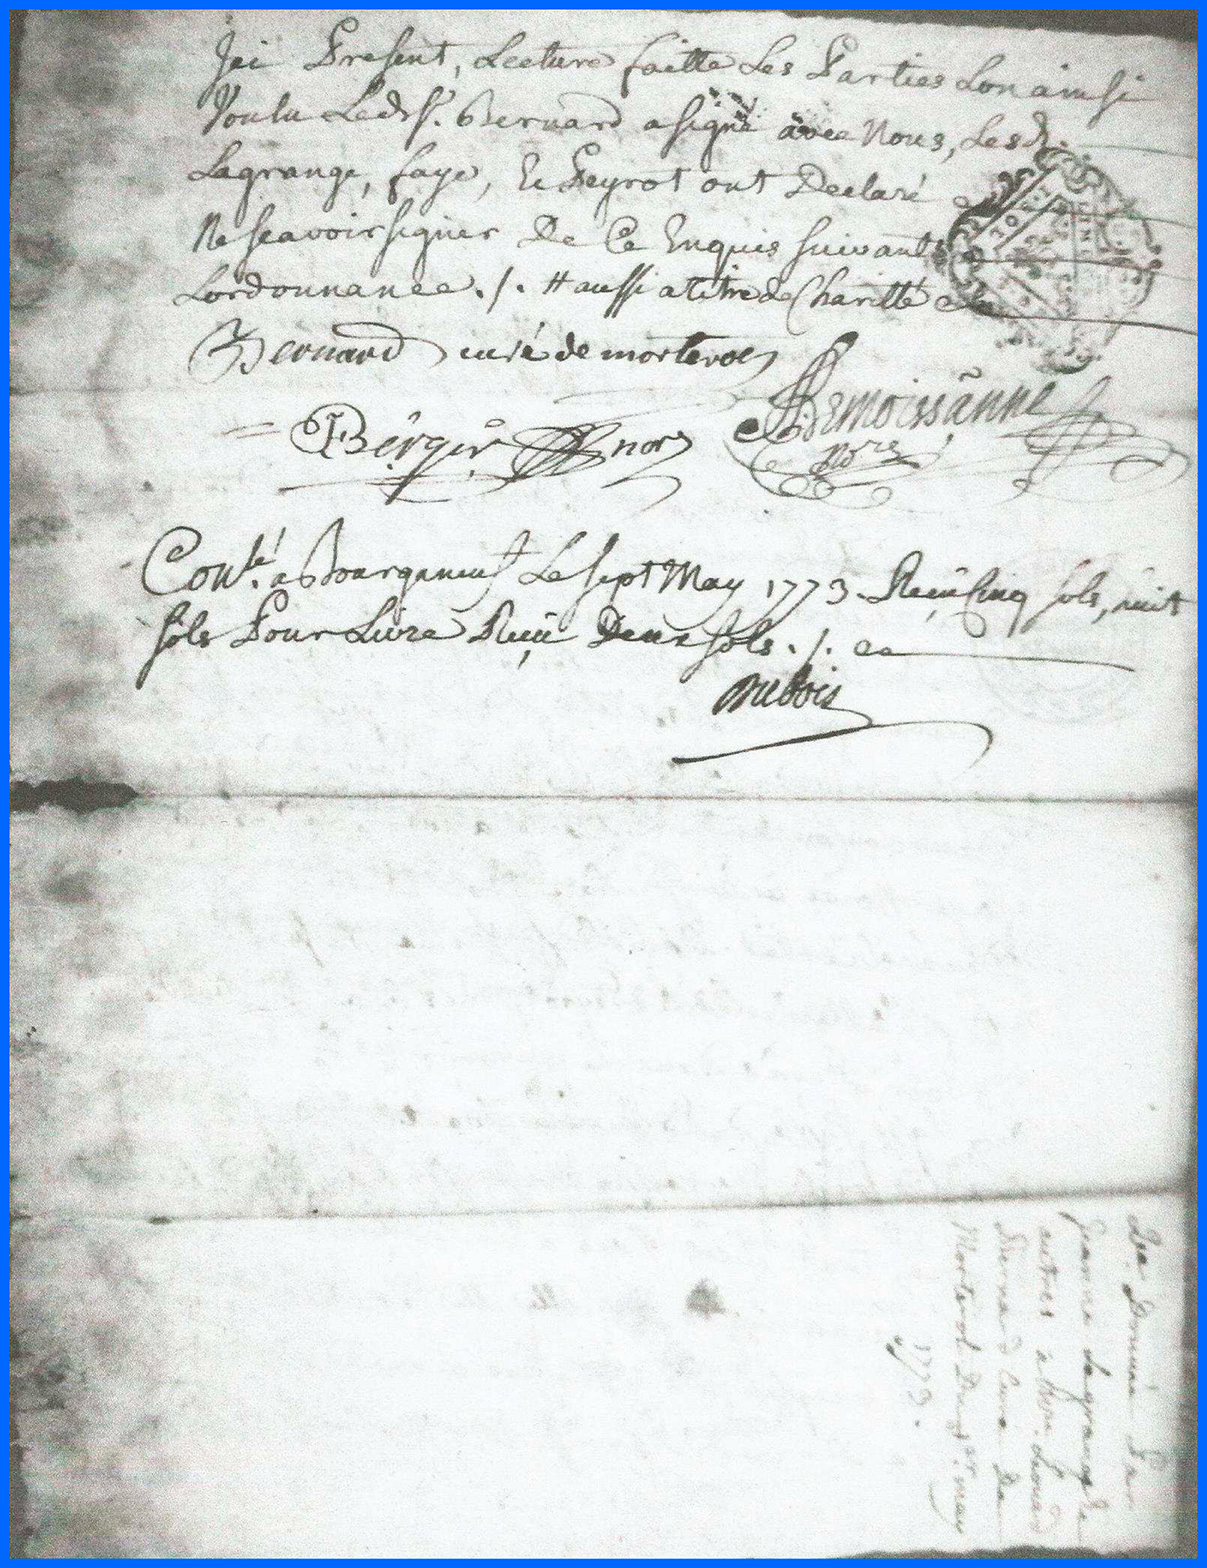 Ici Present, Lecture faitte Les Parties Lon ainsi
Voulu Ledt Sr. Bernard a signé avec Nous, Lesd.
Lagrange, faye, Et Peyrot ont Declaré
Ne scavoir signer De Ce Enquis suivant
Lordonnance ./. # aussi a titre de Charitté
Bernard curé de morterol
Berger nore
Demoissanne
nore
Conlé. a Bourganeuf Le sept May 1773. Reçu Cinq sols, huit
sols Pour Livre Reçu Deux sols ./.
Dubois
Donnée Par
Jeanne Lagrange &
autres a Mre. Leonard
Bernard Curé De
Morterol Du may
1773.